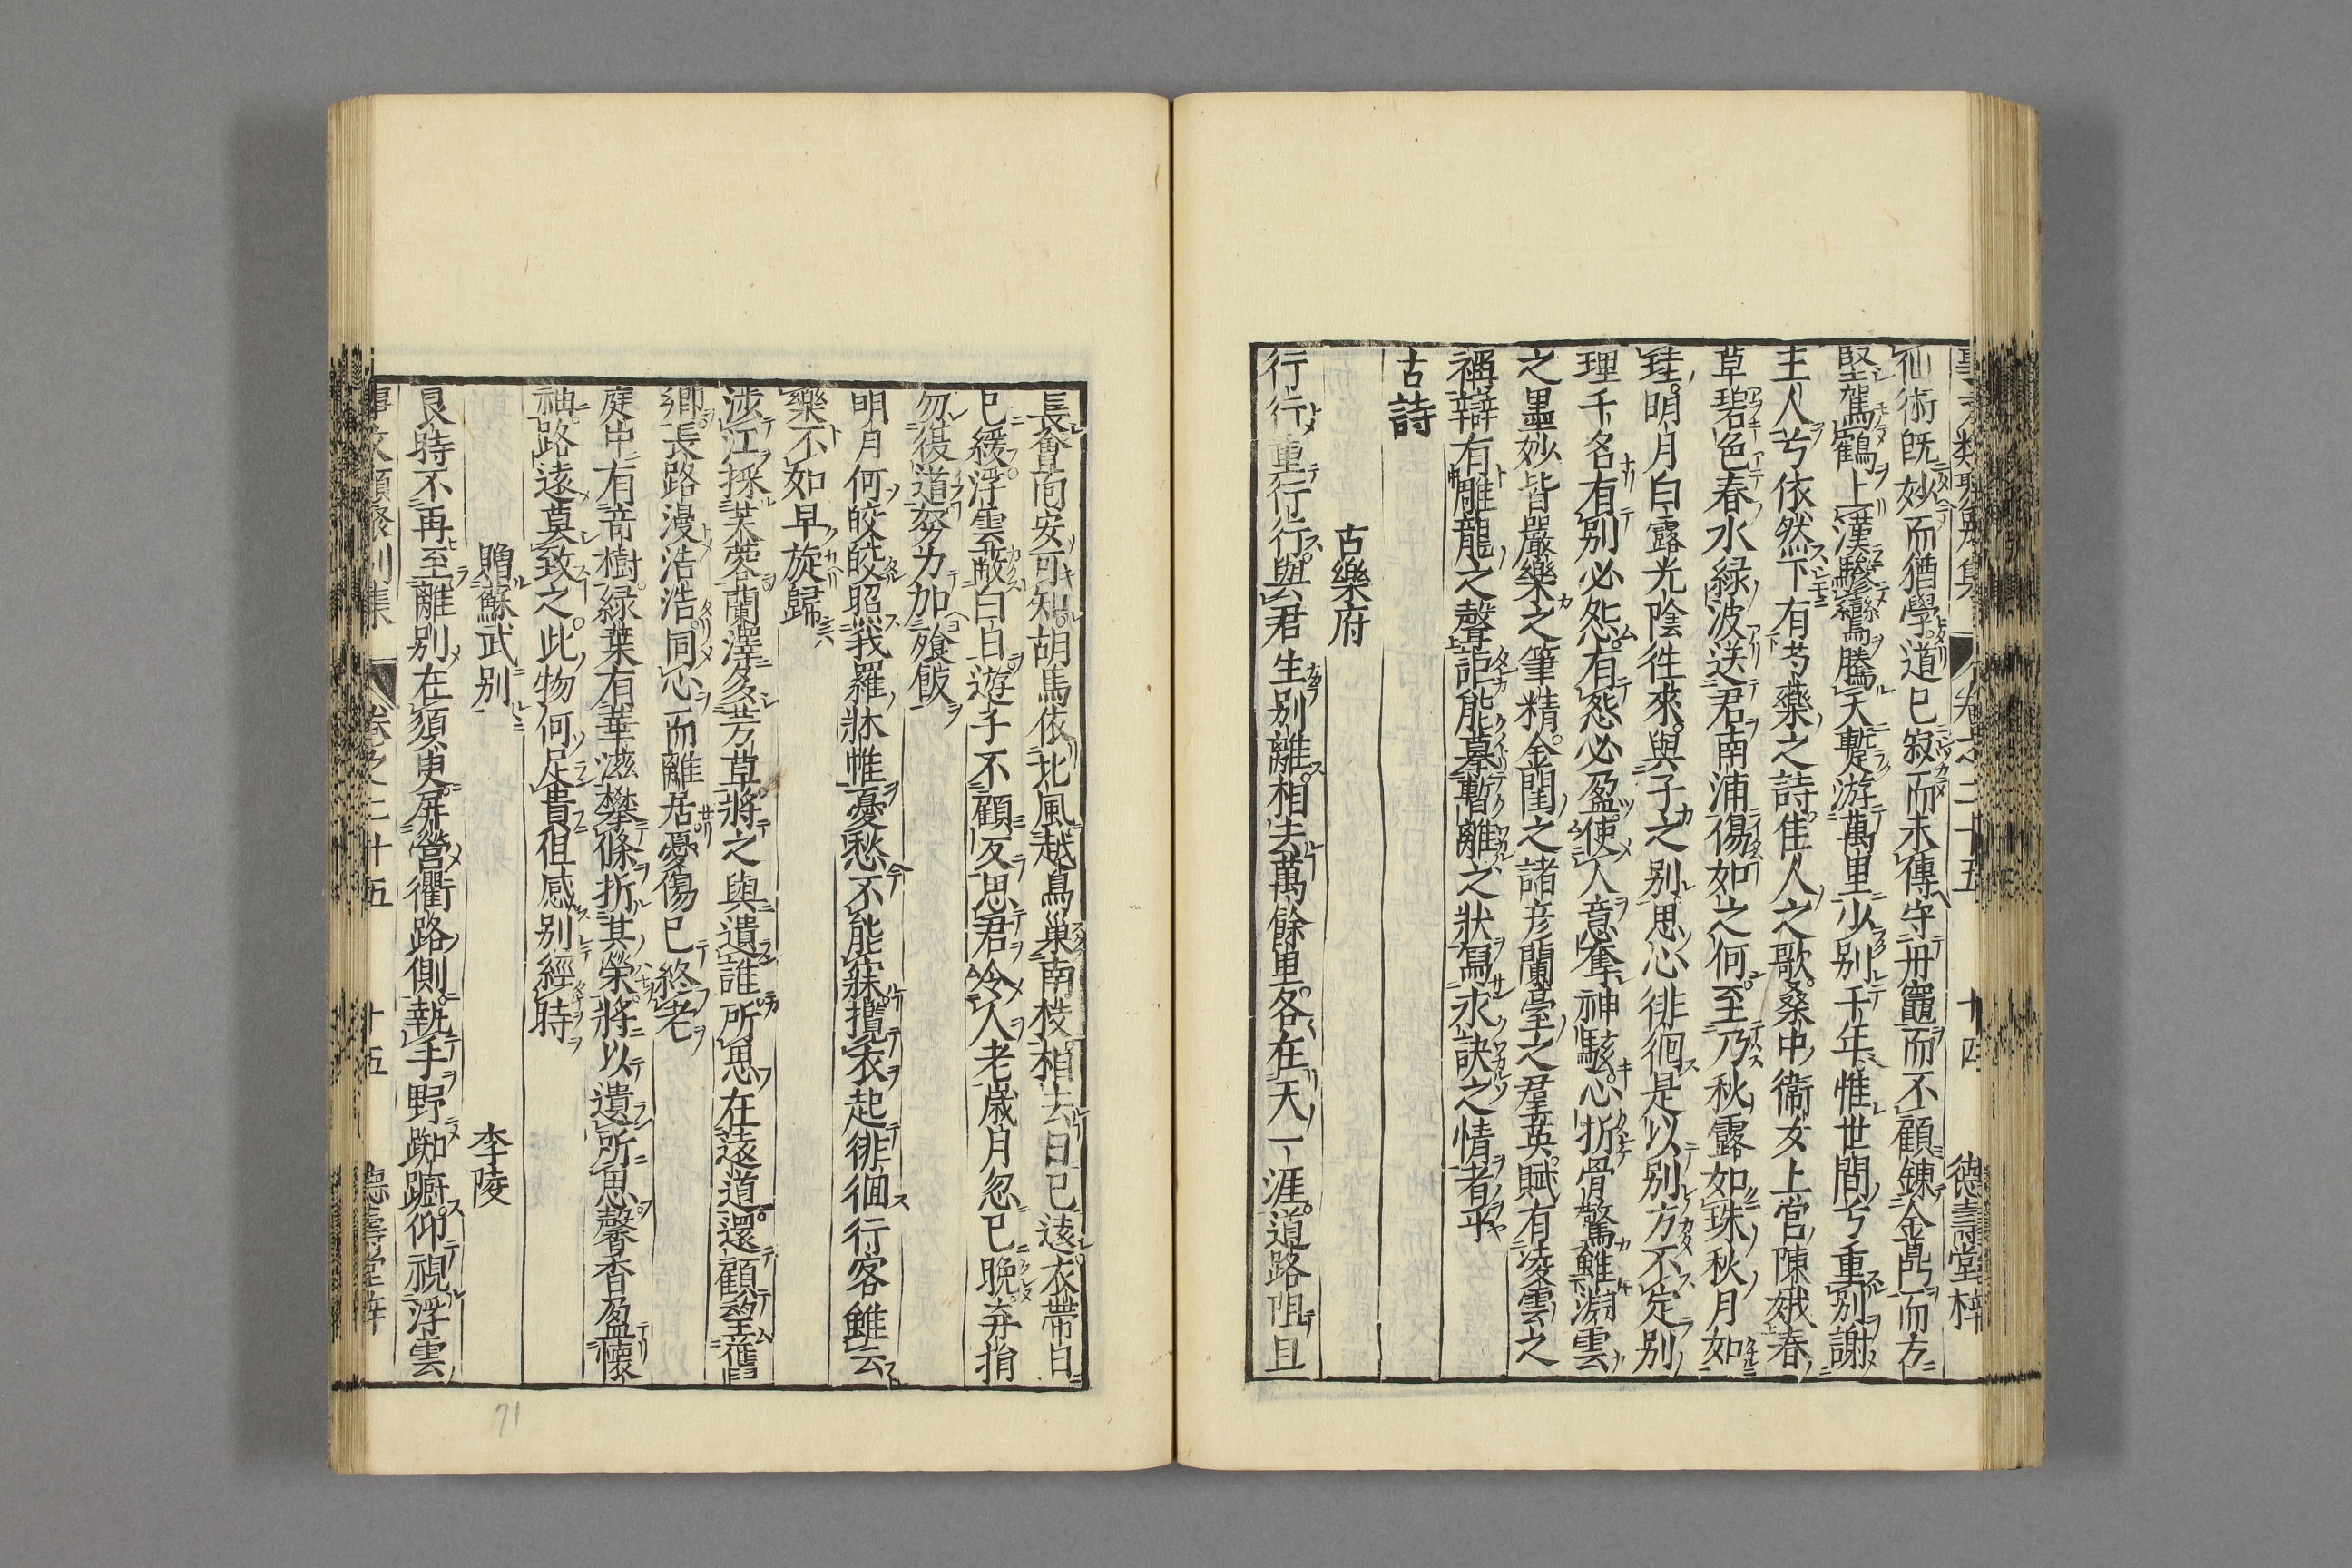 仙術既妙而猶學道已寂而未傳守丹竈而不顧鍊金鼎而方
堅駕鶴上漢驂鸞騰天蹔游萬里少别千年惟世間兮重别謝
主人兮依然下有芍藥之詩佳人之歌桑中衞女上宮陳娥春
草碧色春水緑波送君南浦傷如之何至乃秋露如珠秋月如
珪明月白露光陰徃來與子之别思心徘徊是以别方不定别
理千名有别必怨有怨必盈使人意奪神駭心折骨驚雖淵雲
之墨妙皆嚴樂之筆精金閨之諸彦蘭臺之羣英賦有凌雲之
稱辯有雕龍之聲詎能摹暫離之狀冩永訣之情者乎
古詩
古樂府
行行重行行與君生别離相去萬餘里各在天一涯道路阻且
長奮靣安可知胡馬依北風越鳥巢南枝相去日已遠衣帶日
已緩浮雲蔽白日遊子不顧反思君令人老歳月忽已晚弃捐
勿復道努力加飱飯
明月何皎皎照我羅牀惟憂愁不能寐攬衣起徘徊行客雖云
樂不如早旋歸
涉江採芙蓉蘭澤多芳草將之與遺誰所思在遠道還顧望舊
鄉長路漫浩浩同心而離居憂傷已終老
庭中有竒樹緑葉有華滋攀條折其榮將以遺所思馨香盈懷
袖路遠莫致之此物何足貴但感别經時
贈蘇武别 李陵
良時不再至離别在須㬰屏營衢路側執手野踟蹰仰視浮雲
事文類聚别集 卷之二十五 十五 德壽堂梓
71